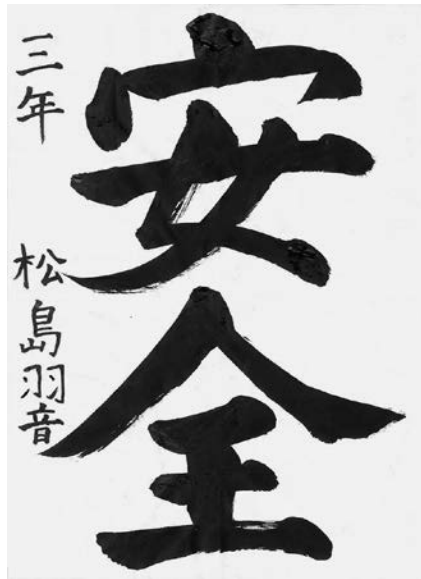 安全
三年 松島羽音